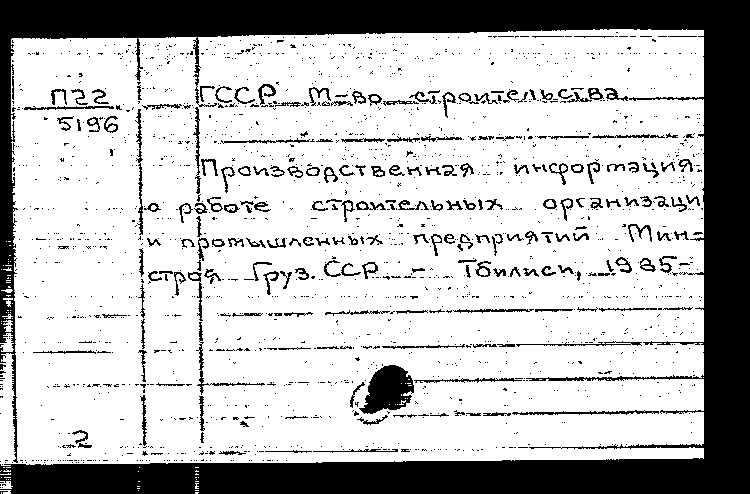 П22 ГССР М-во строительства.
5196
Производственная информация
о работе строительных организаци
и промышленных предприятий Мин=
строя Груз. ССР. – Тбилиси, 1985-
2